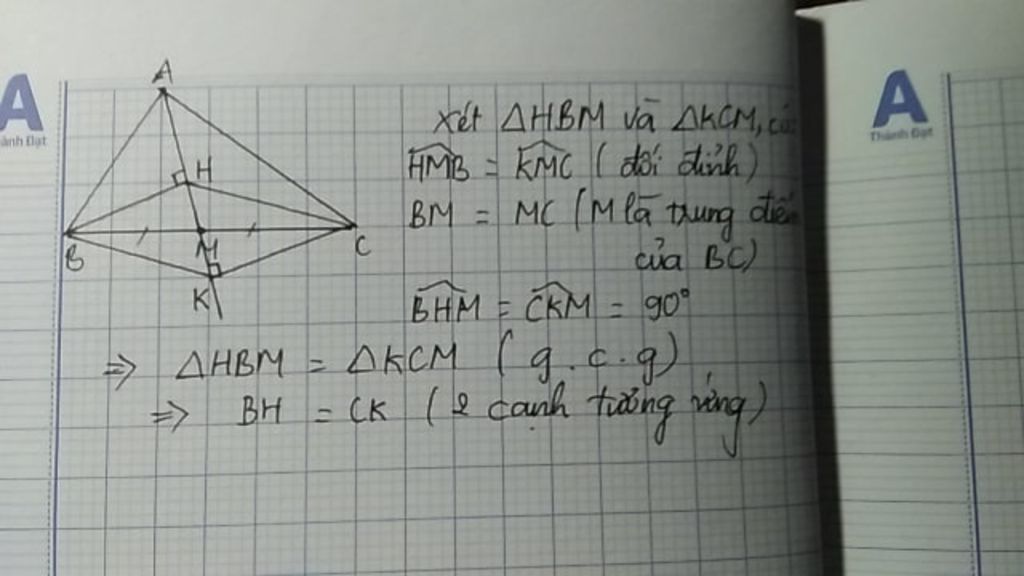 A
ành Đạt
A
H
B
M
C
K
Xét ΔHBM và ΔKCM, có
HMB = KMC (đối đỉnh)
BM = MC (M là trung điểm
của BC)
BHM = CKM = 90°
=> ΔHBM = ΔKCM (g.c.g)
=> BH = CK (2 cạnh tương ứng)
A
Thành Đạt